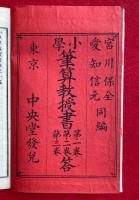 宮川保全
愛知信元
同編
小學
筆算教授書
第一卷
第二卷
第三卷
答
東京
中央堂發兌